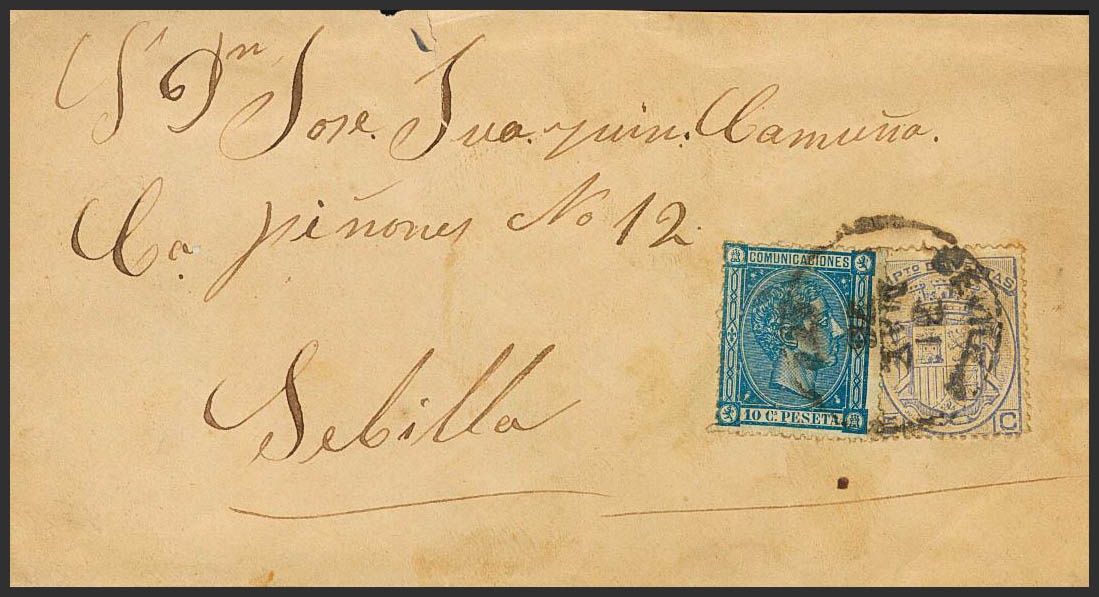 Sr Dn Jose Juaquin. Camuña.
Ca. piñones No 12.
Sebilla
COMUNICACIONES
10 Cs PESETA
C